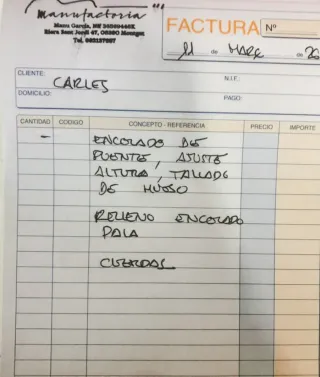 manufactoria
Manu García, NIF
Riera Sant Jordi 47, 08390 Montgat
FACTURA Nº
21 de MARÇ de 20
CLIENTE: CARLES N.I.F.:
DOMICILIO: PAGO:
CANTIDAD CODIGO CONCEPTO - REFERENCIA PRECIO IMPORTE
- ENCOLADO DE
PUENTE, AJUSTE
ALTURA, TALLADO
DE HUESO
RELLENO ENCOLADO
PALA
CUERDAS